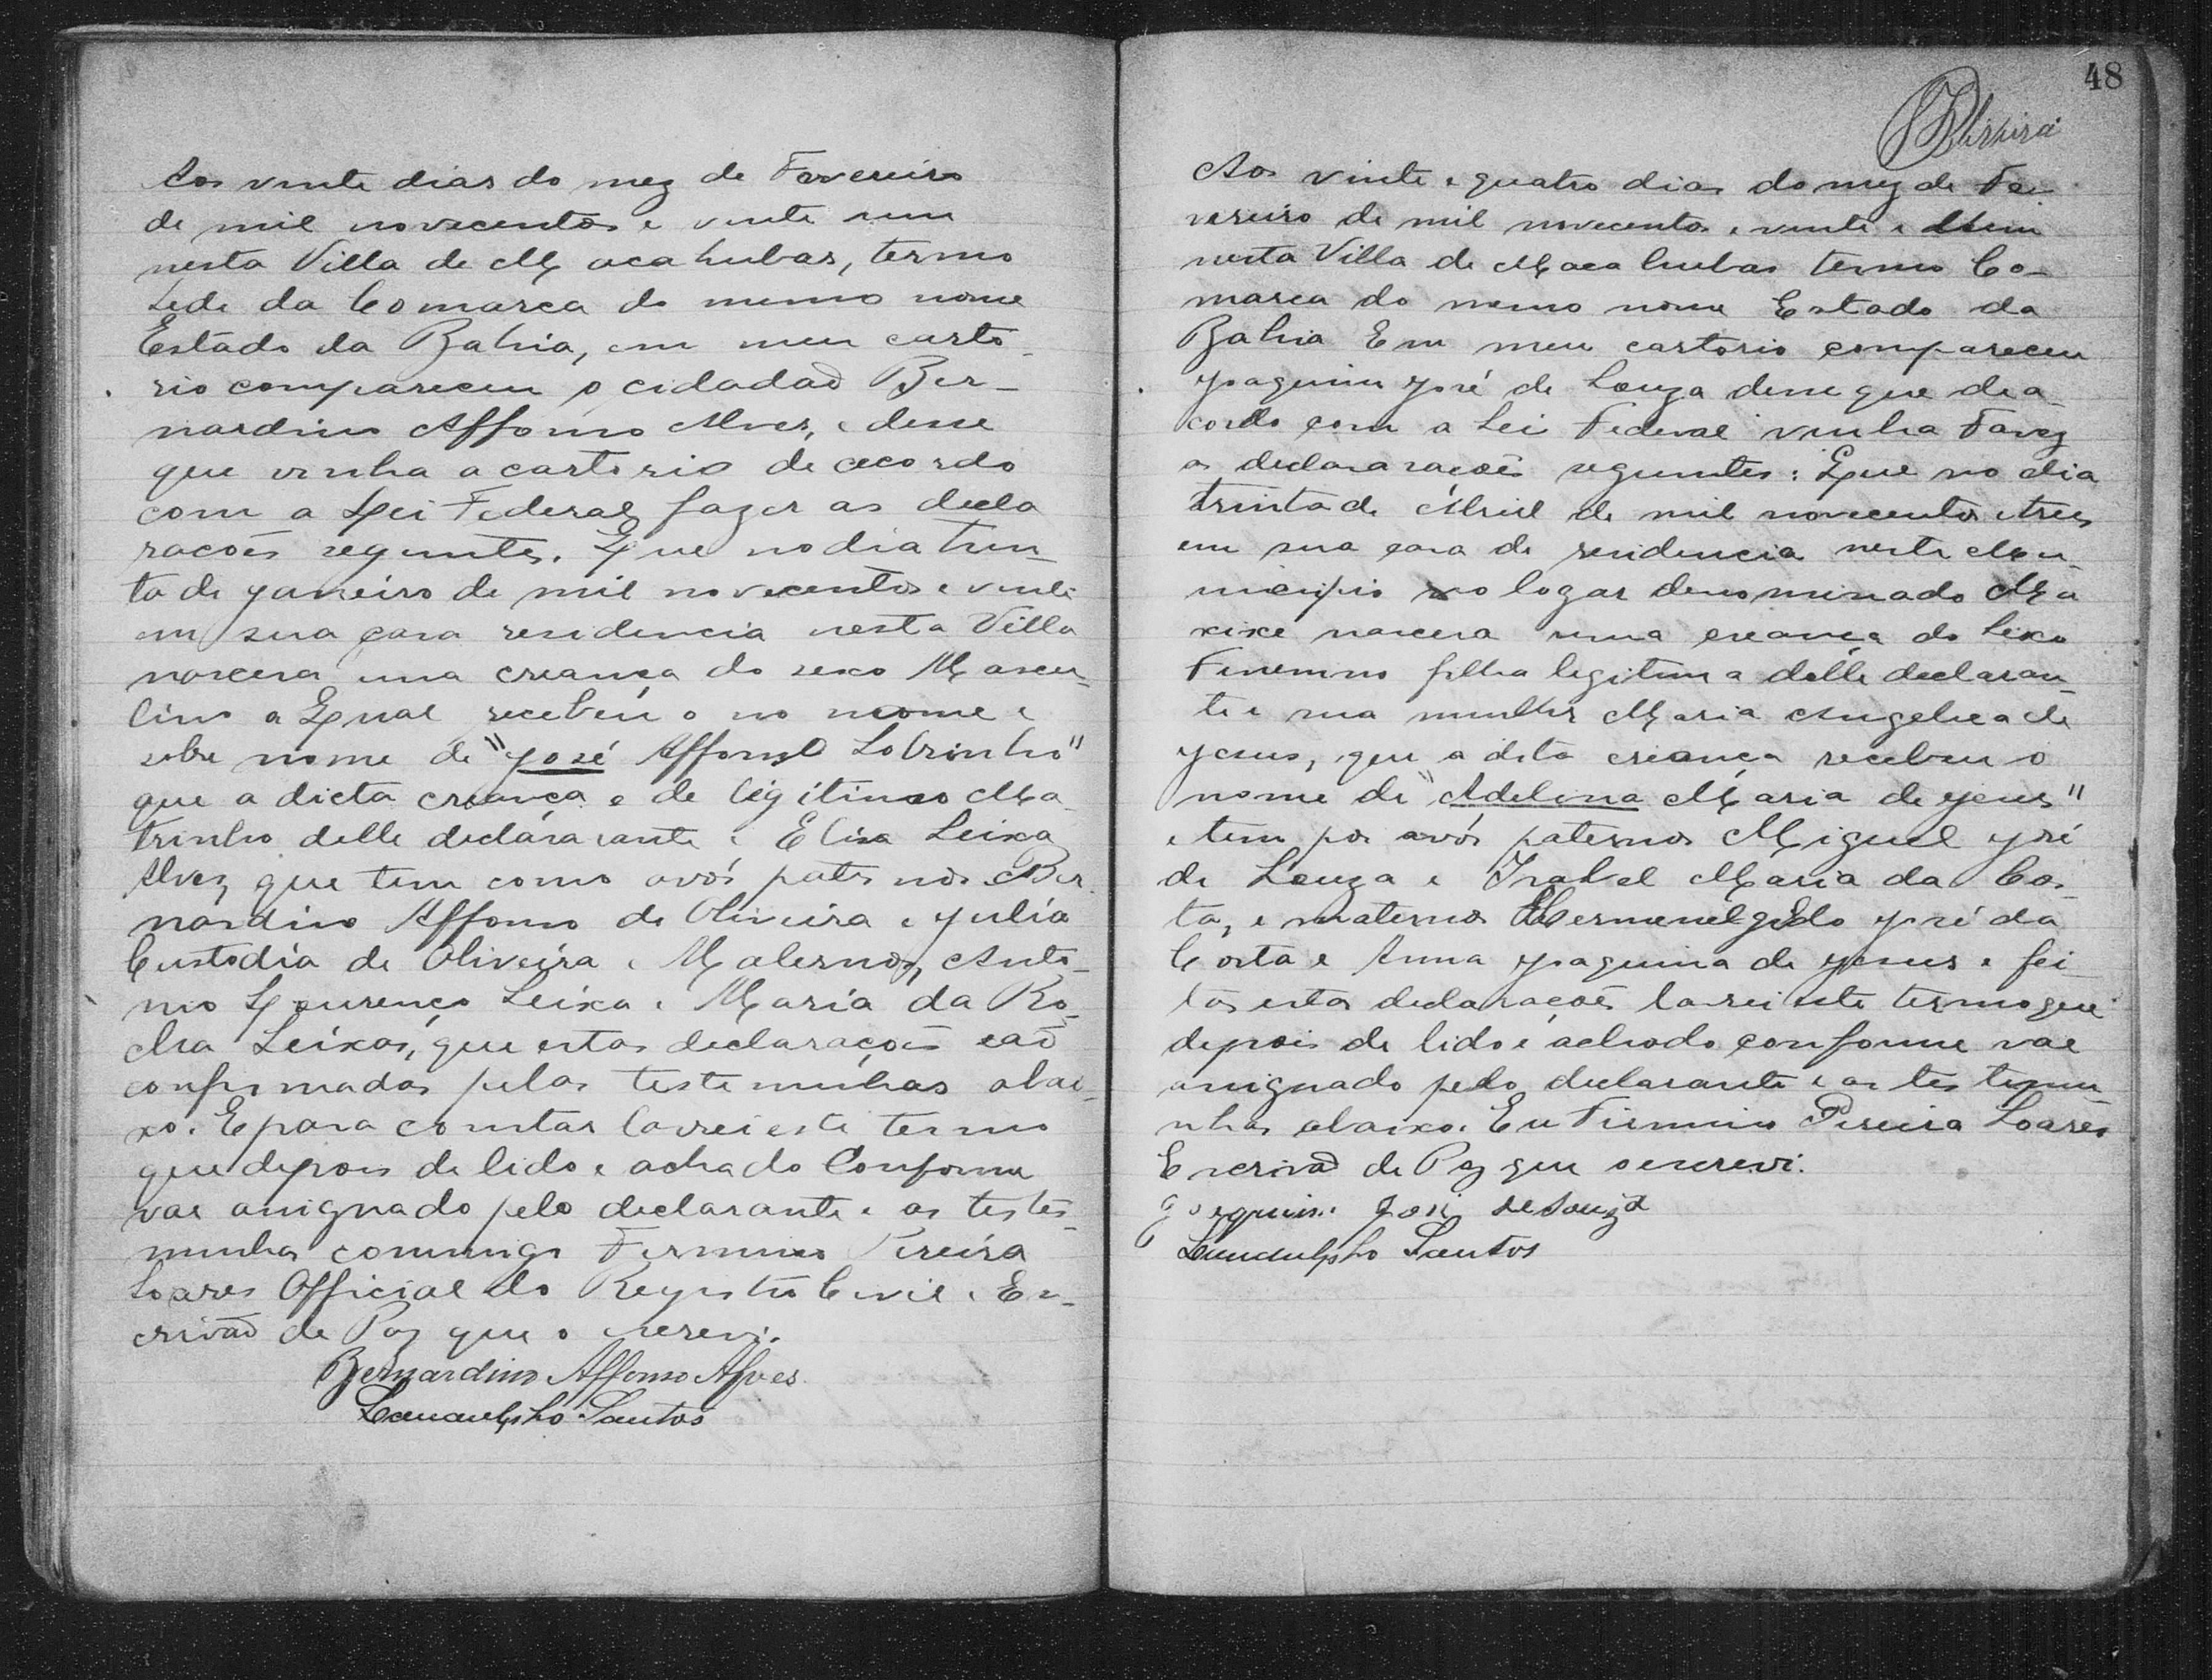 Aos vinte dias do mez de Favereiro
de mil novecentos e vinte um
nesta Villa de Macahubas, termo
sede da Comarca do mesmo nome
Estado da Bahia, em meu carto-
rio compareceu o cidadaõ Ber-
nardino Affonso Alves, e disse
que vinha a cartorio de accordo
com a Lei Federal fazer as decla
racoẽs seguintes. Que no dia trin-
ta de Janeiro de mil novecentos e vinte
em sua casa residencia nesta Villa
nascera uma creança do sexo Mascu-
lino a Qual recebeu o no nome e
sobre nome de "José Affonso Sobrinho"
que a dicta creança e de legitimo Ma-
trinho delle declararante e Elisa Seixa
Alvez, que tem como avós paternos Ber-
nardino Affonso de Oliveira e Julia
Custodia de Oliveira e Maternos, Anto-
nio Lourenço Seixa e Maria da Ro-
cha Seixas, que estas declaraçoẽs saõ
confirmadas pelas testemunhas abai-
xo. E para constar lavrei este termo
que depois de lido e achado Conforme
vae assignado pelo declarante e as teste-
munhas commigo Firmino Pereira
Soares Official do Registro Civil e Es-
crivaõ de Paz que o escrevi.
Bernardino Affonso Alves
Landulpho Santos
48
Pereira
Aos vinte e quatro dias do mez de Fe-
vereiro de mil novecentos e vinte e Hum
nesta Villa de Macahubas termo Co-
marca do mesmo nome Estado da
Bahia Em meu cartorio compareceu
Joaquim José de Souza disse que de a-
cordo com a Lei Federal vinha Favez
as declararaçoẽs seguintes: Que no dia
trinta de Abril de mil novecentos e tres
em sua casa de residencia neste Mu-
nicipio no logar denominado Ma
xixe nascera uma creança do Sexo
Femenino filha legitima delle declaran-
te e sua mulher Maria Angelica de
Jesus, que a dita creança recebeu o
nome de "Adelina Maria de Jesus"
e tem por avós paternos Miguel José
de Souza e Isabel Maria da Cos-
ta, e maternos Hermenelgildo José da
Costa e Anna Joaquina de Jesus e fei-
tas estas declaraçoẽs lavrei este termo que
depois de lido e achado conforme vae
assignado pelo declarante e as testemu-
nhas abaixo. Eu Firmino Pereira Soares
Escrivaõ de Paz que o escrevi.
Joaquim José de Souza
Landulpho Santos